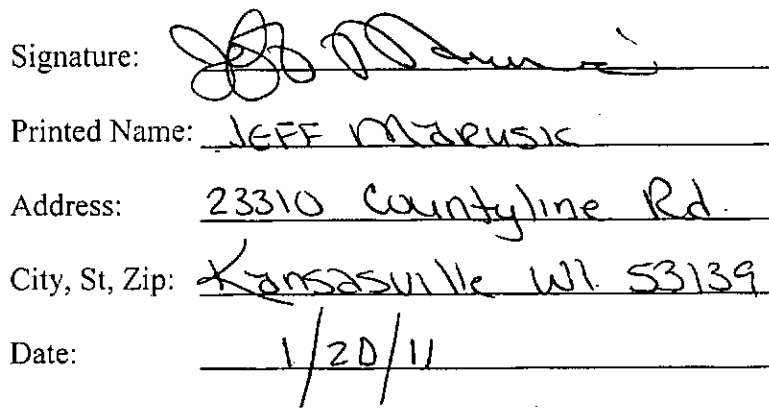 Signature: Jeff Marusic
Printed Name: JEFF Marusic
Address: 23310 Countyline Rd.
City, St, Zip: Kansasville WI. 53139
Date: 1/20/11